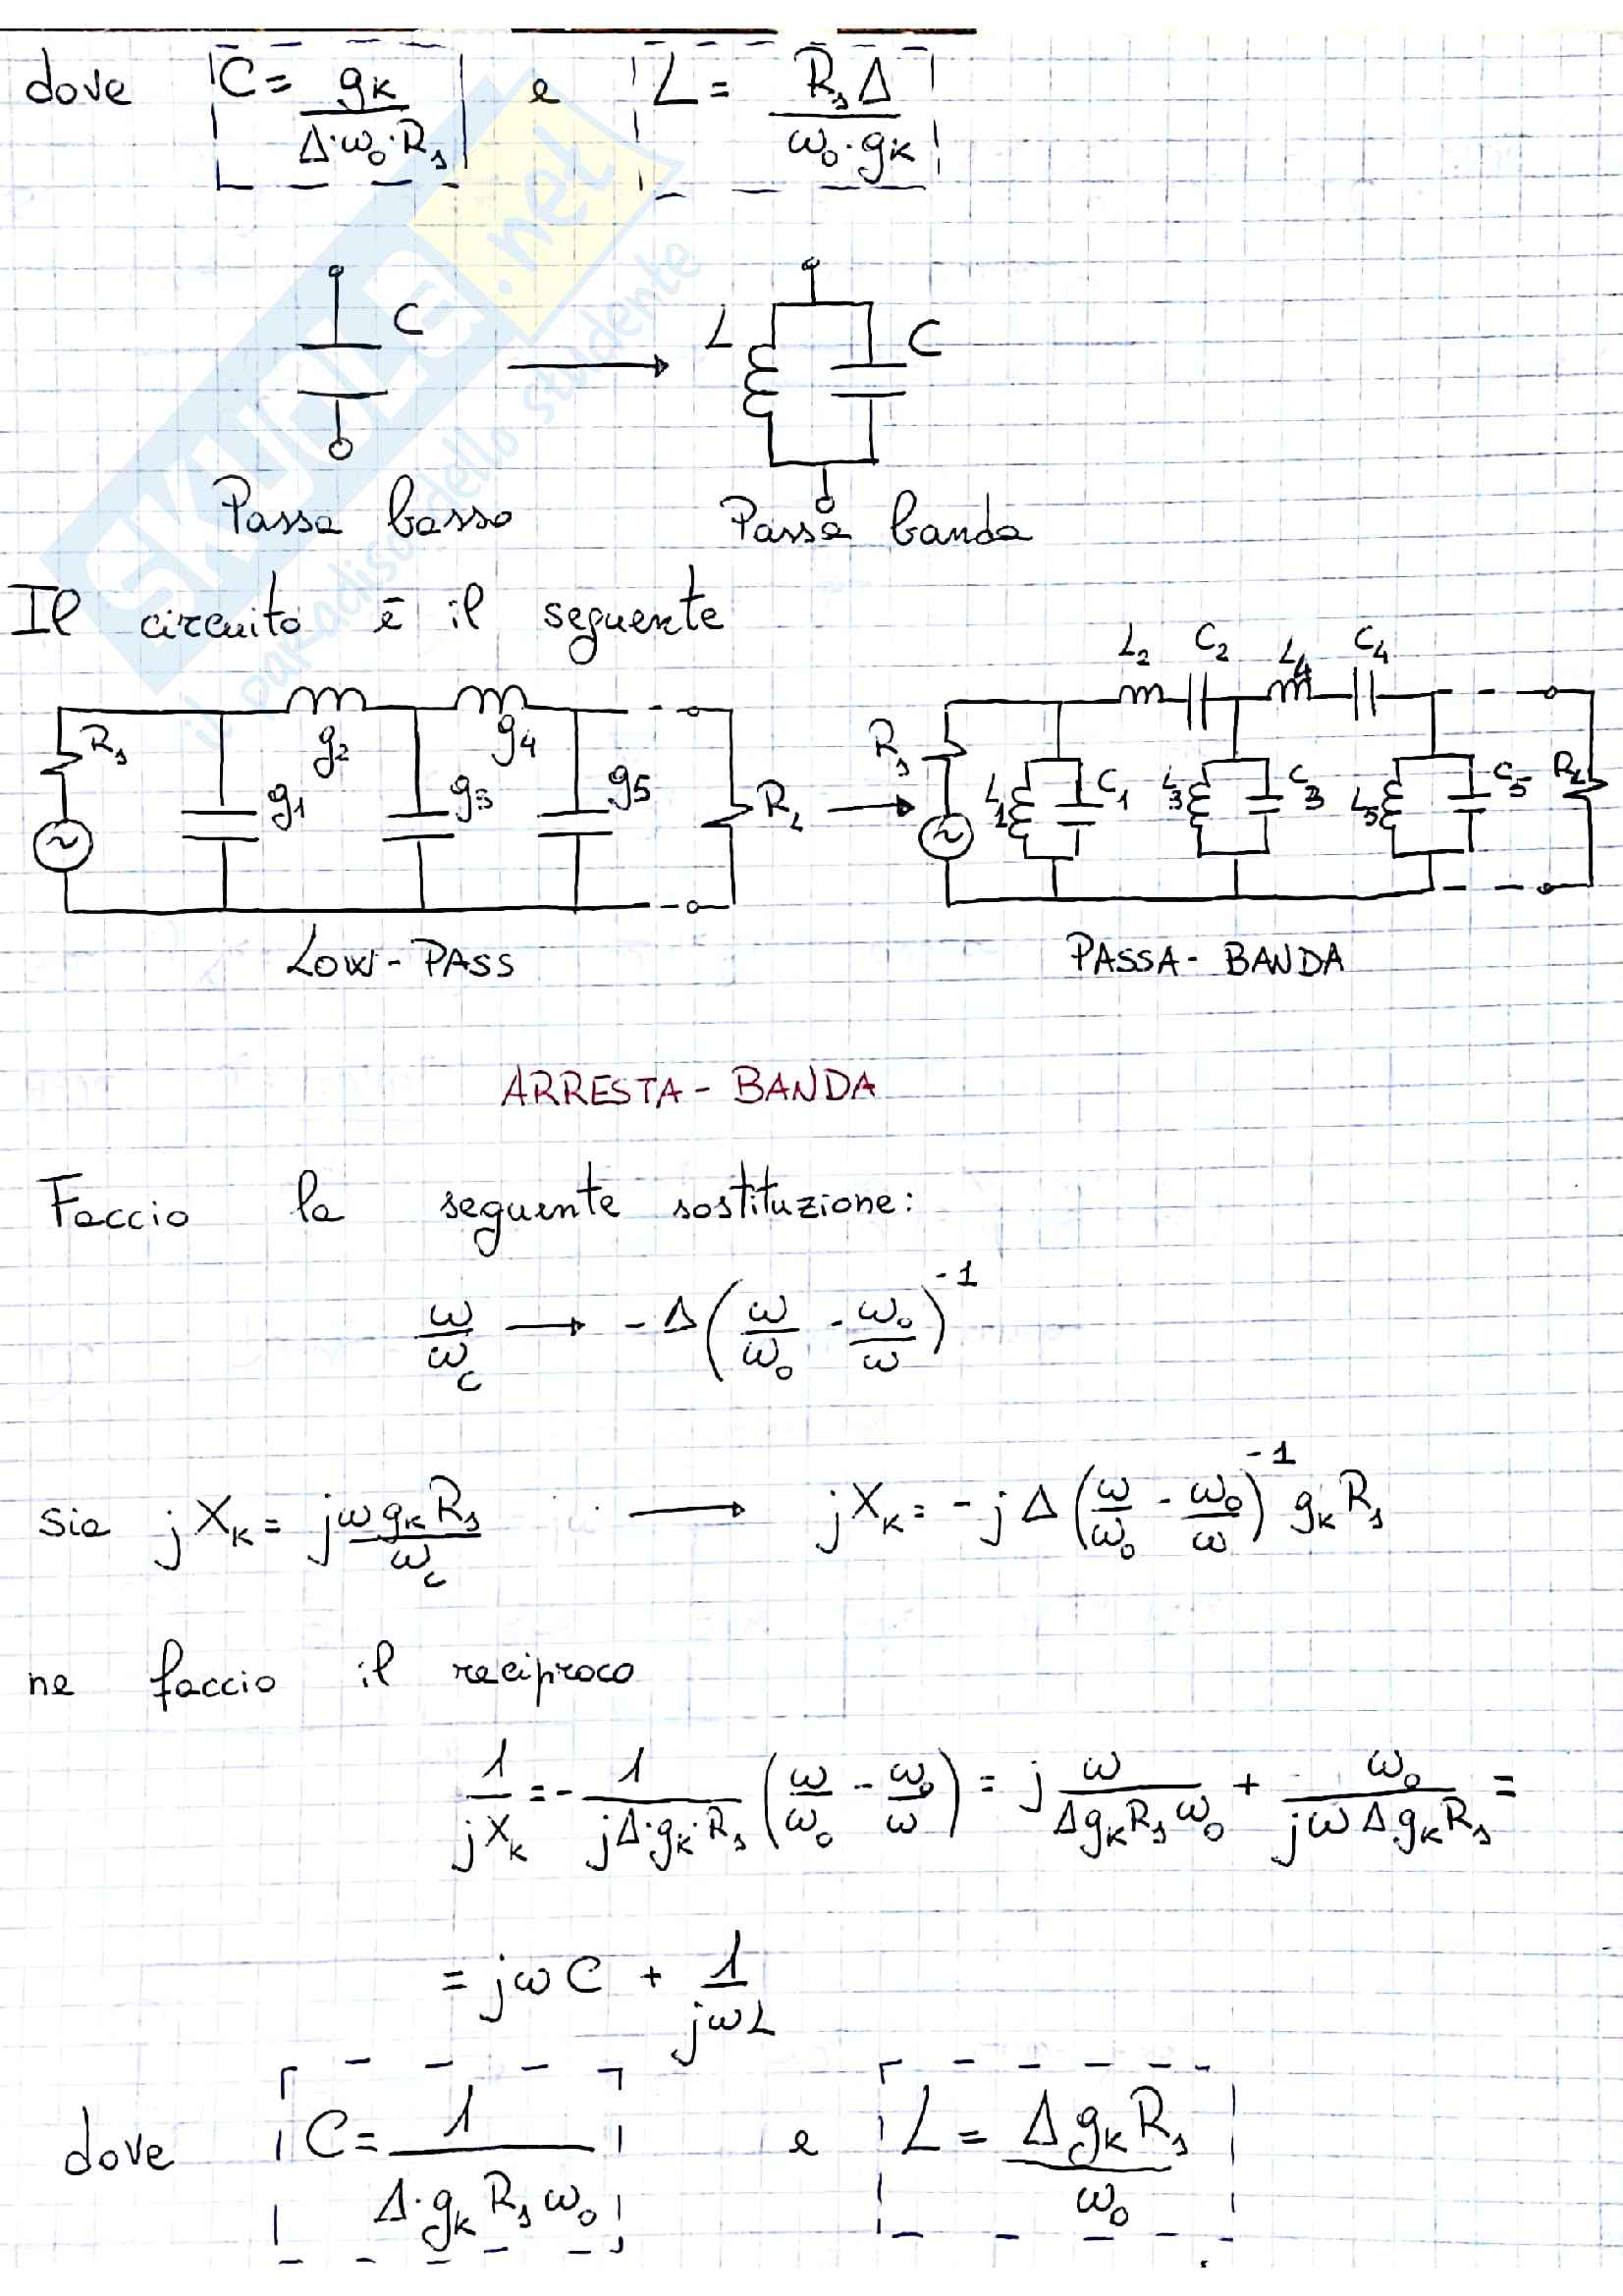 dove C = gₖ / (Δ·ω₀·Rₛ) e L = RₛΔ / (ω₀·gₖ)
C
L C
Passa basso Passa banda
Il circuito è il seguente
L₂ C₂ L₄ C₄
Rₛ g1 g₂ g3 g4 g5 R_L
Rₛ L1 C1 L3 C3 L5 C5 R_L
LOW-PASS PASSA-BANDA
ARRESTA-BANDA
Faccio la seguente sostituzione:
ω/ω_c → -Δ(ω/ω₀ - ω₀/ω)⁻¹
sia jXₖ = jωgₖRₛ/ω_c → jXₖ = -jΔ(ω/ω₀ - ω₀/ω)⁻¹ gₖRₛ
ne faccio il reciproco
1/(jXₖ) = - 1/(jΔ·gₖ·Rₛ) (ω/ω₀ - ω₀/ω) = j ω/(ΔgₖRₛω₀) + ω₀/(jωΔgₖRₛ) =
= jωC + 1/(jωL)
dove C = 1/(Δ·gₖRₛω₀) e L = ΔgₖRₛ/ω₀
SKUOLA.net
il paradiso dello studente